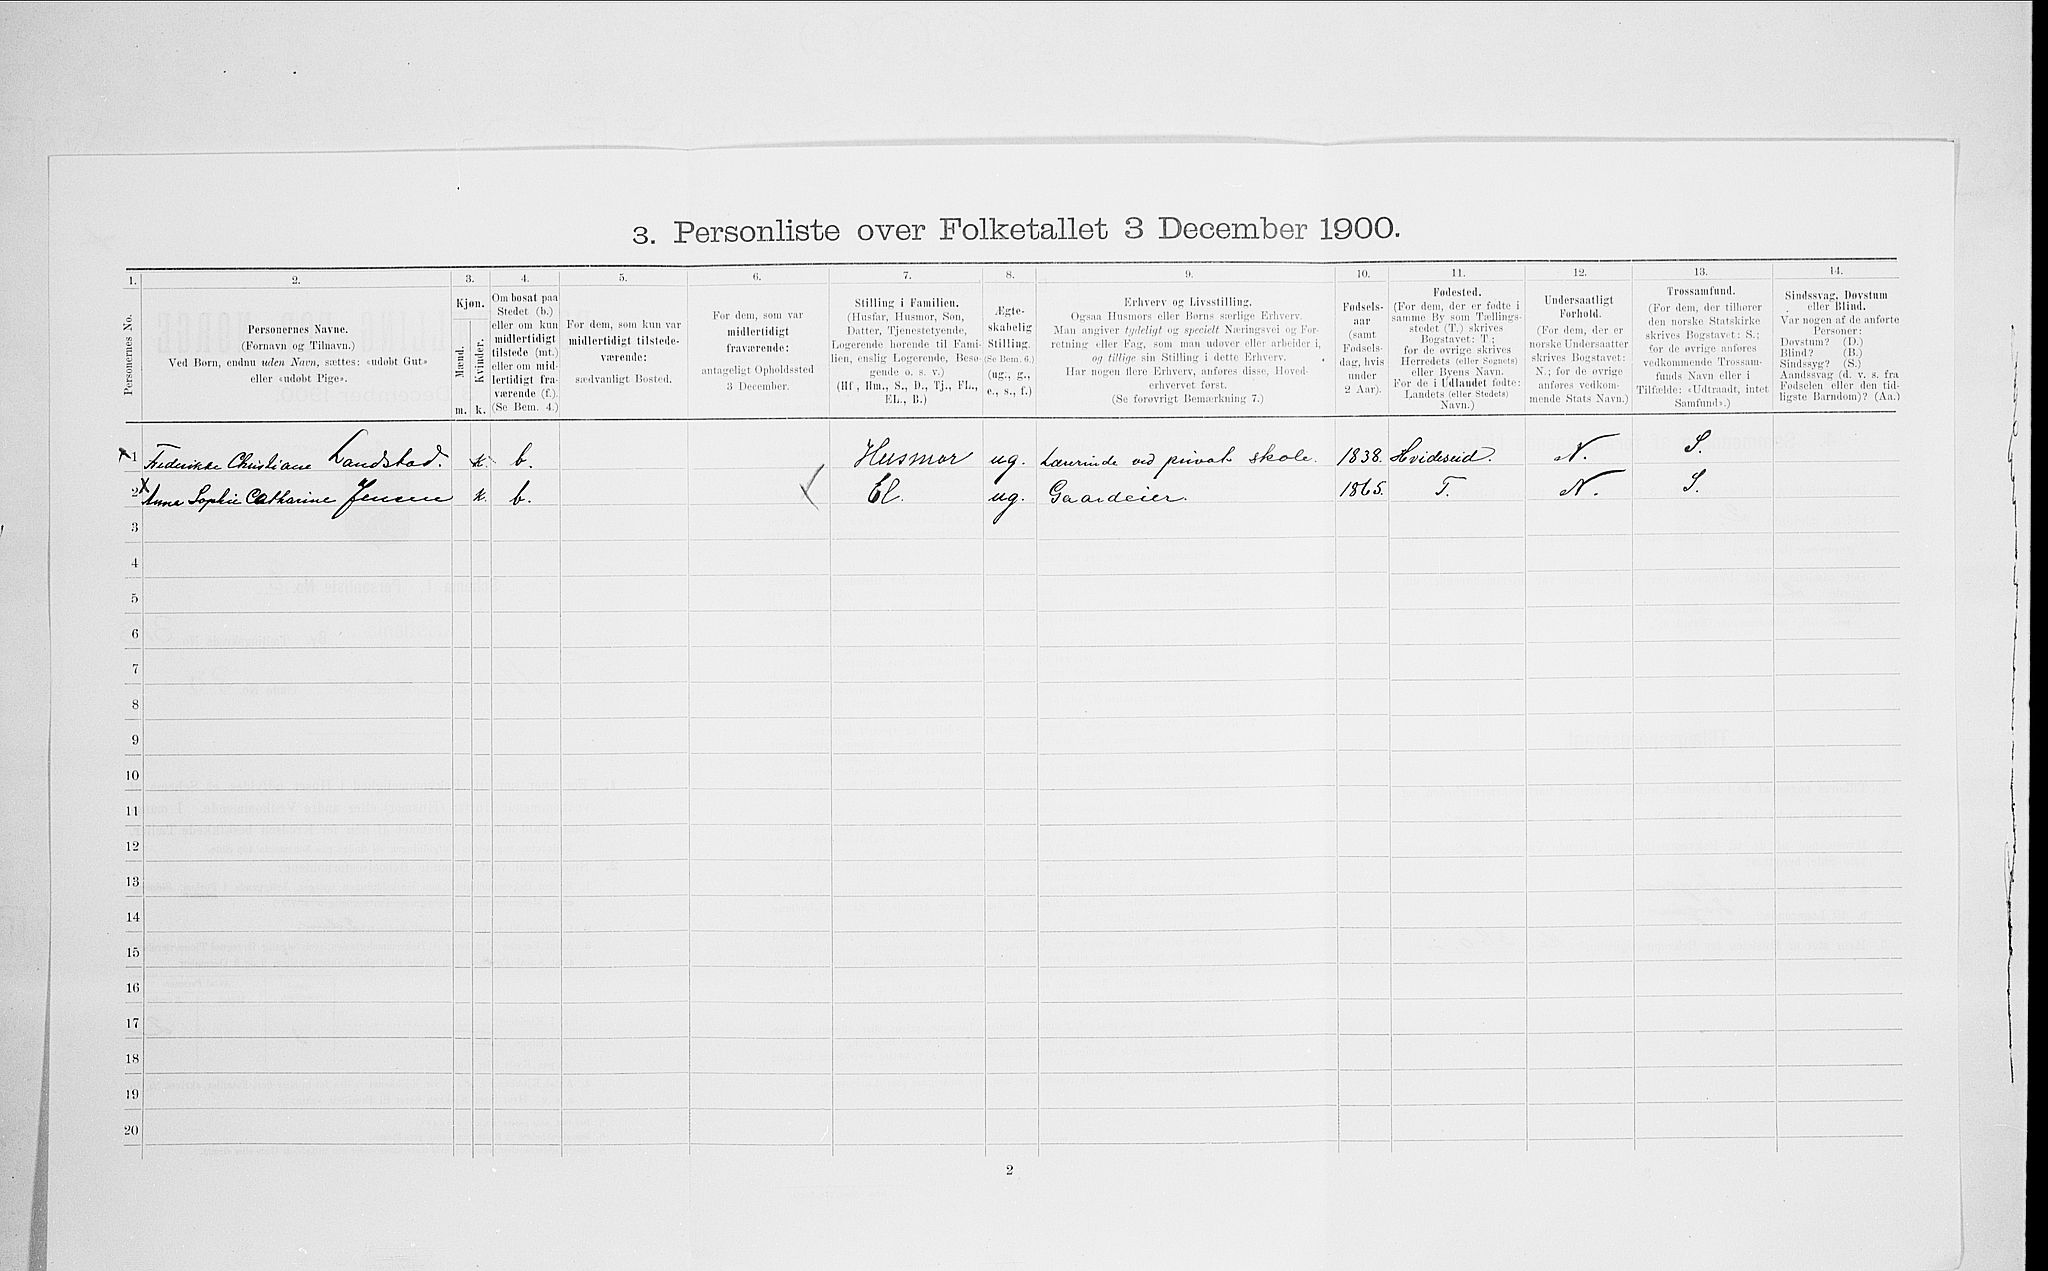 3. Personliste over Folketallet 3 December 1900.
1. 2. 3. 4. 5. 6. 7. 8. 9. 10. 11. 12. 13. 14.
Personernes No.
Personernes Navne.
(Fornavn og Tilnavn.)
Ved Børn, endnu uden Navn, sættes: «udøbt Gut»
eller «udøbt Pige».
Kjøn.
Mænd.
Kvinder.
m. k.
Om bosat paa
Stedet (b.)
eller om kun
midlertidigt
tilstede (mt.)
eller om mid-
lertidigt fra-
værende (f.).
(Se Bem. 4.)
For dem, som kun var
midlertidigt tilstede-
værende:
sædvanligt Bosted.
For dem, som var
midlertidigt
fraværende:
antageligt Opholdssted
3 December.
Stilling i Familien.
(Husfar, Husmor, Søn,
Datter, Tjenestetyende,
Logerende hørende til Fami-
lien, enslig Logerende, Besø-
gende o. s. v.)
(Hf., Hm., S., D., Tj., FL.,
EL., B.)
Ægte-
skabelig
Stilling.
(Se Bem. 6.)
(ug., g.,
e., s., f.)
Erhverv og Livsstilling.
Ogsaa Husmors eller Børns særlige Erhverv.
Man angiver tydeligt og specielt Næringsvei og For-
retning eller Fag, som man udøver eller arbeider i,
og tillige sin Stilling i dette Erhverv.
Har nogen flere Erhverv, anføres disse, Hoved-
erhvervet først.
(Se forøvrigt Bemærkning 7.)
Fødsels-
aar
(samt
Fødsels-
dag, hvis
under
2 Aar).
Fødested.
(For dem, der er fødte i
samme By som Tællings-
stedet (T.) skrives
Bogstavet: T.;
for de øvrige skrives
Herredets (eller Sognets)
eller Byens Navn.
For de i Udlandet fødte:
Landets (eller Stedets)
Navn.)
Undersaatligt
Forhold.
(For dem, der er
norske Undersaatter
skrives Bogstavet:
N.; for de øvrige
anføres vedkom-
mende Stats Navn.)
Trossamfund.
(For dem, der tilhører
den norske Statskirke
skrives Bogstavet: S.;
for de øvrige anføres
vedkommende Trossam-
funds Navn eller i
Tilfælde: «Udtraadt, intet
Samfund».)
Sindssvag, Døvstum
eller Blind.
Var nogen af de anførte
Personer:
Døvstum? (D.)
Blind? (B.)
Sindssyg? (S.)
Aandssvag (d. v. s. fra
Fødselen eller den tid-
ligste Barndom)? (Aa.)
1 Frederikke Christiane Landstad. k. b. Husmor ug. Lærerinde ved privat skole. 1838. Hvideseid. N. S.
2 Anna Sophie Catharine Jensen k. b. El. ug. Gaardeier. 1865. T. N. S.
3
4
5
6
7
8
9
10
11
12
13
14
15
16
17
18
19
20
2